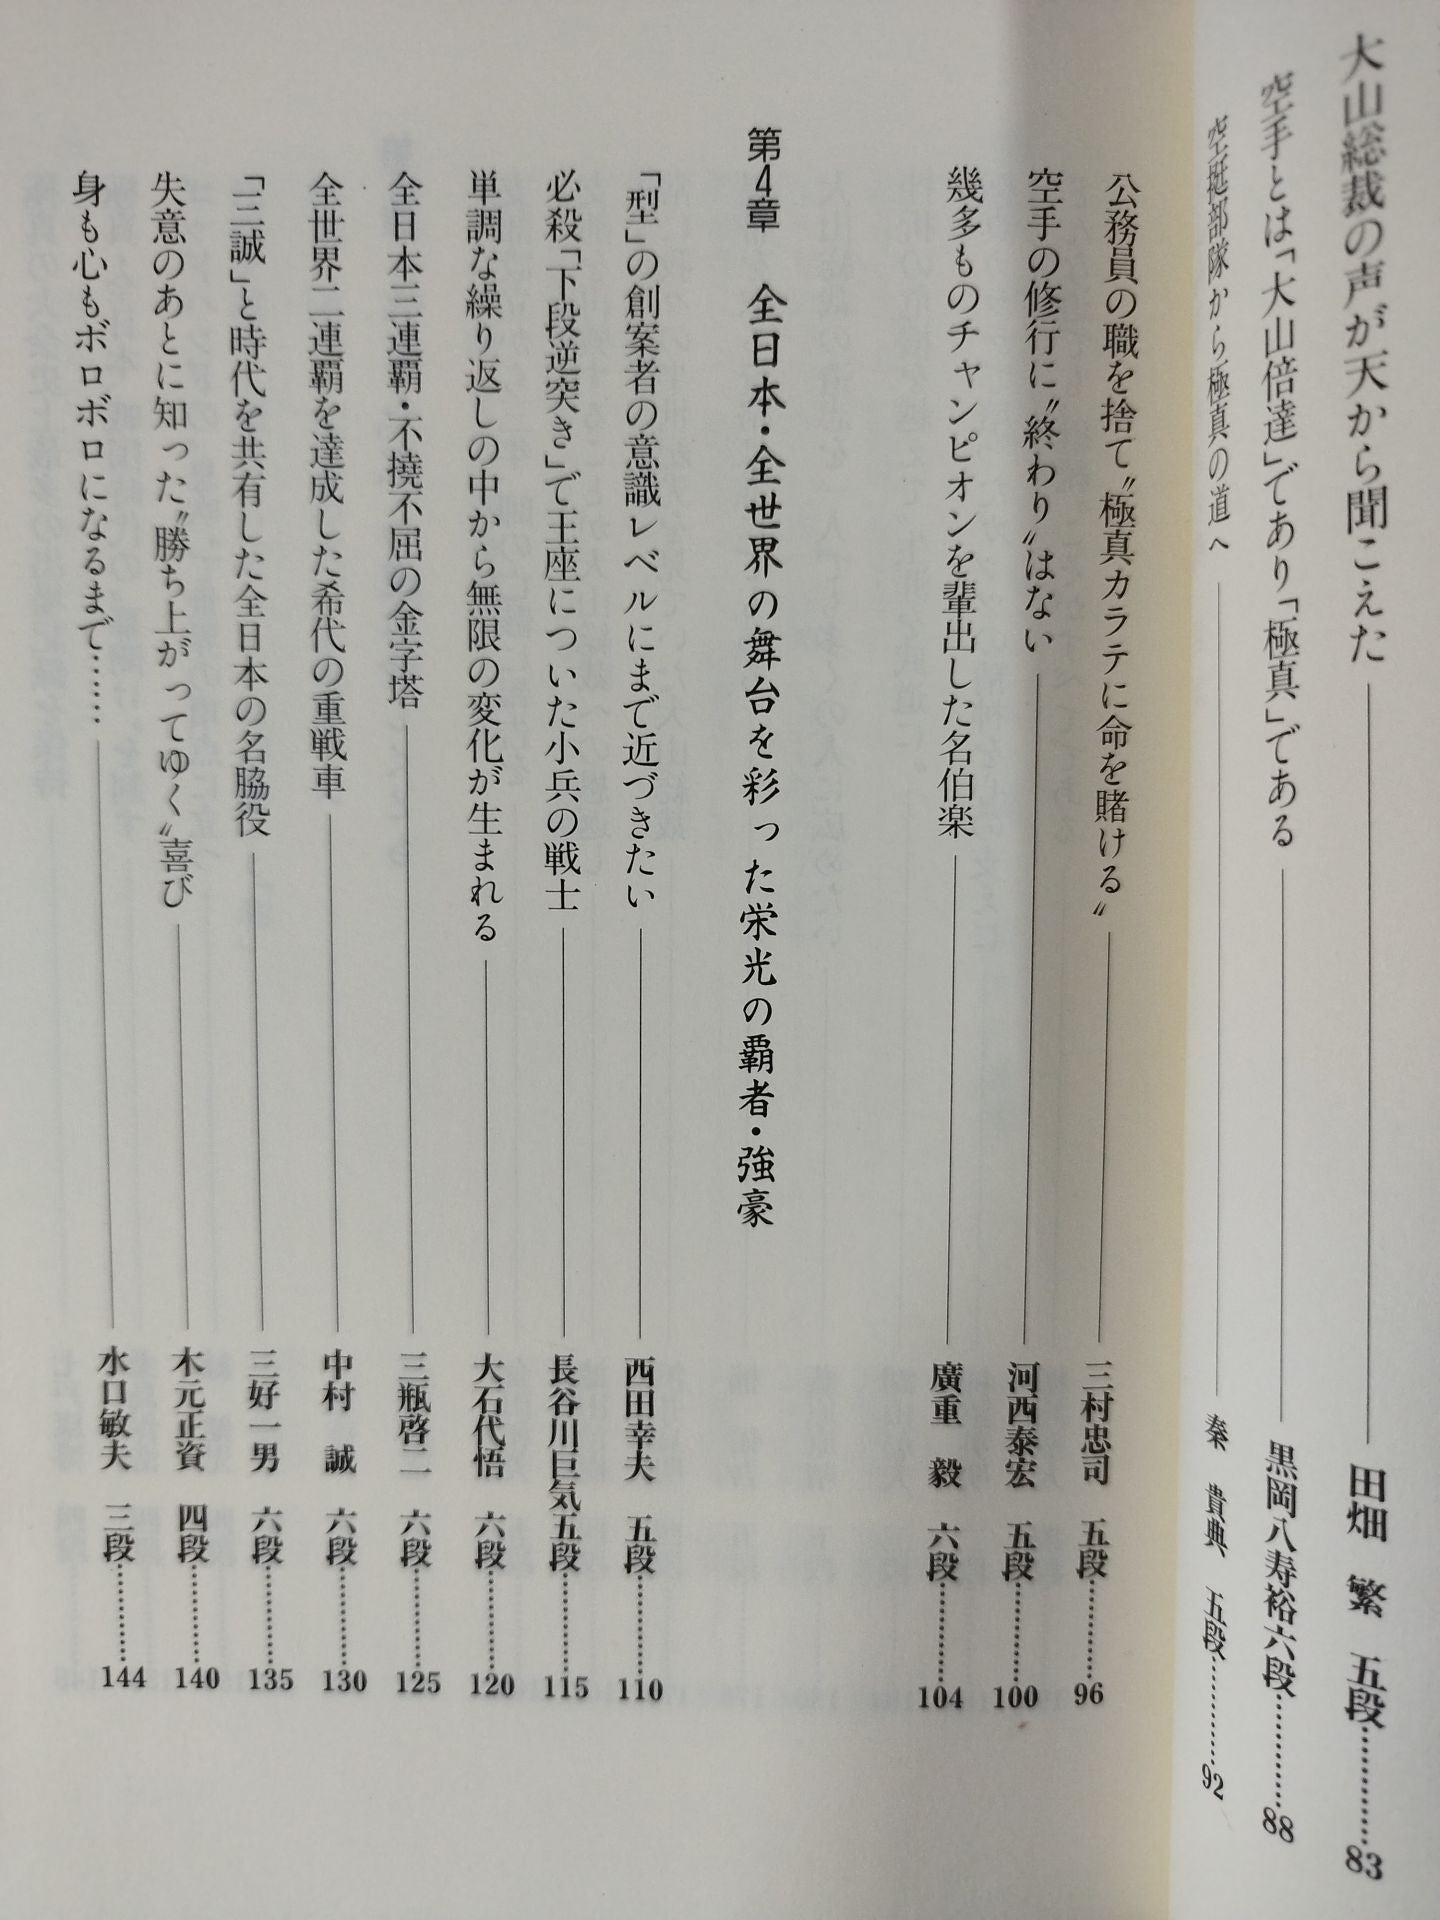 大山総裁の声が天から聞こえた――田畑　繁　五段…………83
空手とは「大山倍達」であり「極真」である――黒岡八寿裕六段…………88
空挺部隊から極真の道へ――秦　貴典　五段…………92
公務員の職を捨て〝極真カラテに命を賭ける〟――三村忠司　五段…………96
空手の修行に〝終わり〟はない――河西泰宏　五段…………100
幾多ものチャンピオンを輩出した名伯楽――廣重　毅　六段…………104
第4章　全日本・全世界の舞台を彩った栄光の覇者・強豪
「型」の創案者の意識レベルにまで近づきたい――西田幸夫　五段…………110
必殺「下段逆突き」で王座についた小兵の戦士――長谷川巨気五段…………115
単調な繰り返しの中から無限の変化が生まれる――大石代悟　六段…………120
全日本三連覇・不撓不屈の金字塔――三瓶啓二　六段…………125
全世界二連覇を達成した希代の重戦車――中村　誠　六段…………130
「三誠」と時代を共有した全日本の名脇役――三好一男　六段…………135
失意のあとに知った〝勝ち上がってゆく〟喜び――木元正資　四段…………140
身も心もボロボロになるまで……――水口敏夫　三段…………144